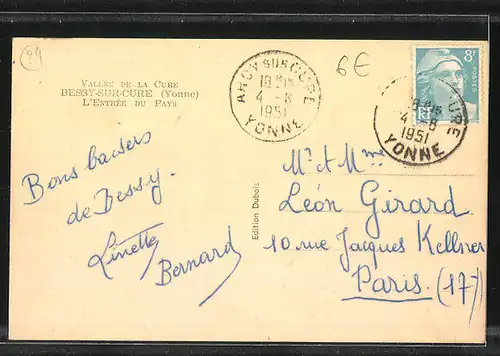 89
VALLÉE DE LA CURE
BESSY-SUR-CURE (Yonne)
L'ENTRÉE DU PAYS
6€
ARCY-SUR-CURE
18H15
4-8
1951
YONNE
8F
POSTES
RF
CURE
18H15
4-8
1951
YONNE
Bons baisers
de Bessy.
Linette
Bernard
Edition Dubois
Mr et Mme
Léon Girard
10 rue Jacques Kellner
Paris (17)